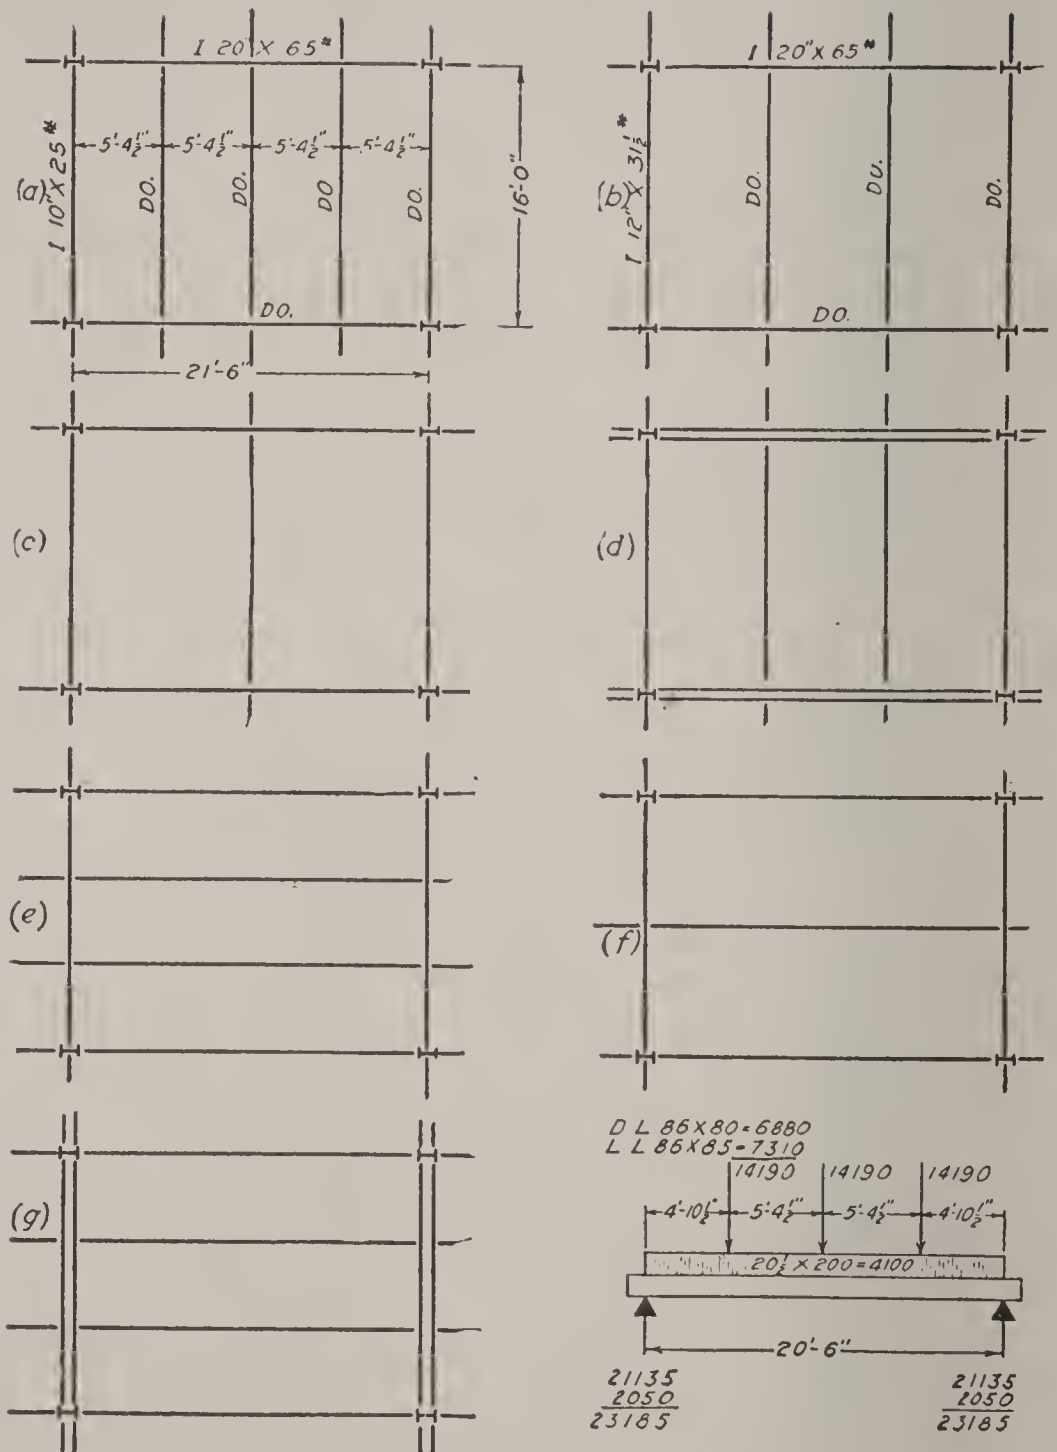 I 20" X 65#
5'-4½" 5'-4½" 5'-4½" 5'-4½"
16'-0"
(a) I 10" X 25# DO. DO. DO DO.
DO.
21'-6"
I 20" X 65#
(b) I 12" X 31½# DO. DO. DO.
DO.
(c)
(d)
(e)
(f)
(g)
D L 86 X 80 = 6880
L L 86 X 85 = 7310
14190 14190 14190
4'-10½" 5'-4½" 5'-4½" 4'-10½"
20½ X 200 = 4100
20'-6"
21135 21135
2050 2050
23185 23185